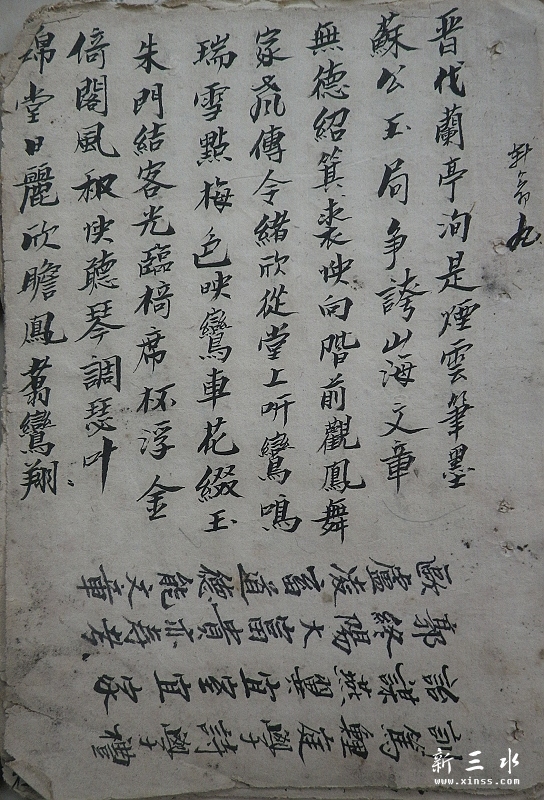 晋代蘭亭洵是煙雲筆墨
蘇公玉局争誇山海文章
無德紹箕裘怏向階前觀鳳舞
家傳令緒欣從堂上听鸞鳴
瑞雪點梅色映鸞車花綴玉
朱門結客光臨椅席杯浮金
倚閣風和怏聽琴調瑟叶
錦堂日麗欣瞻鳳翥鸞翔
歐盧凌富道德能文章
郭終陽大富貴亦寿考
詒謀燕翼宜室宜家
訓篤鯉庭學詩學禮
新三水
www.xinss.com